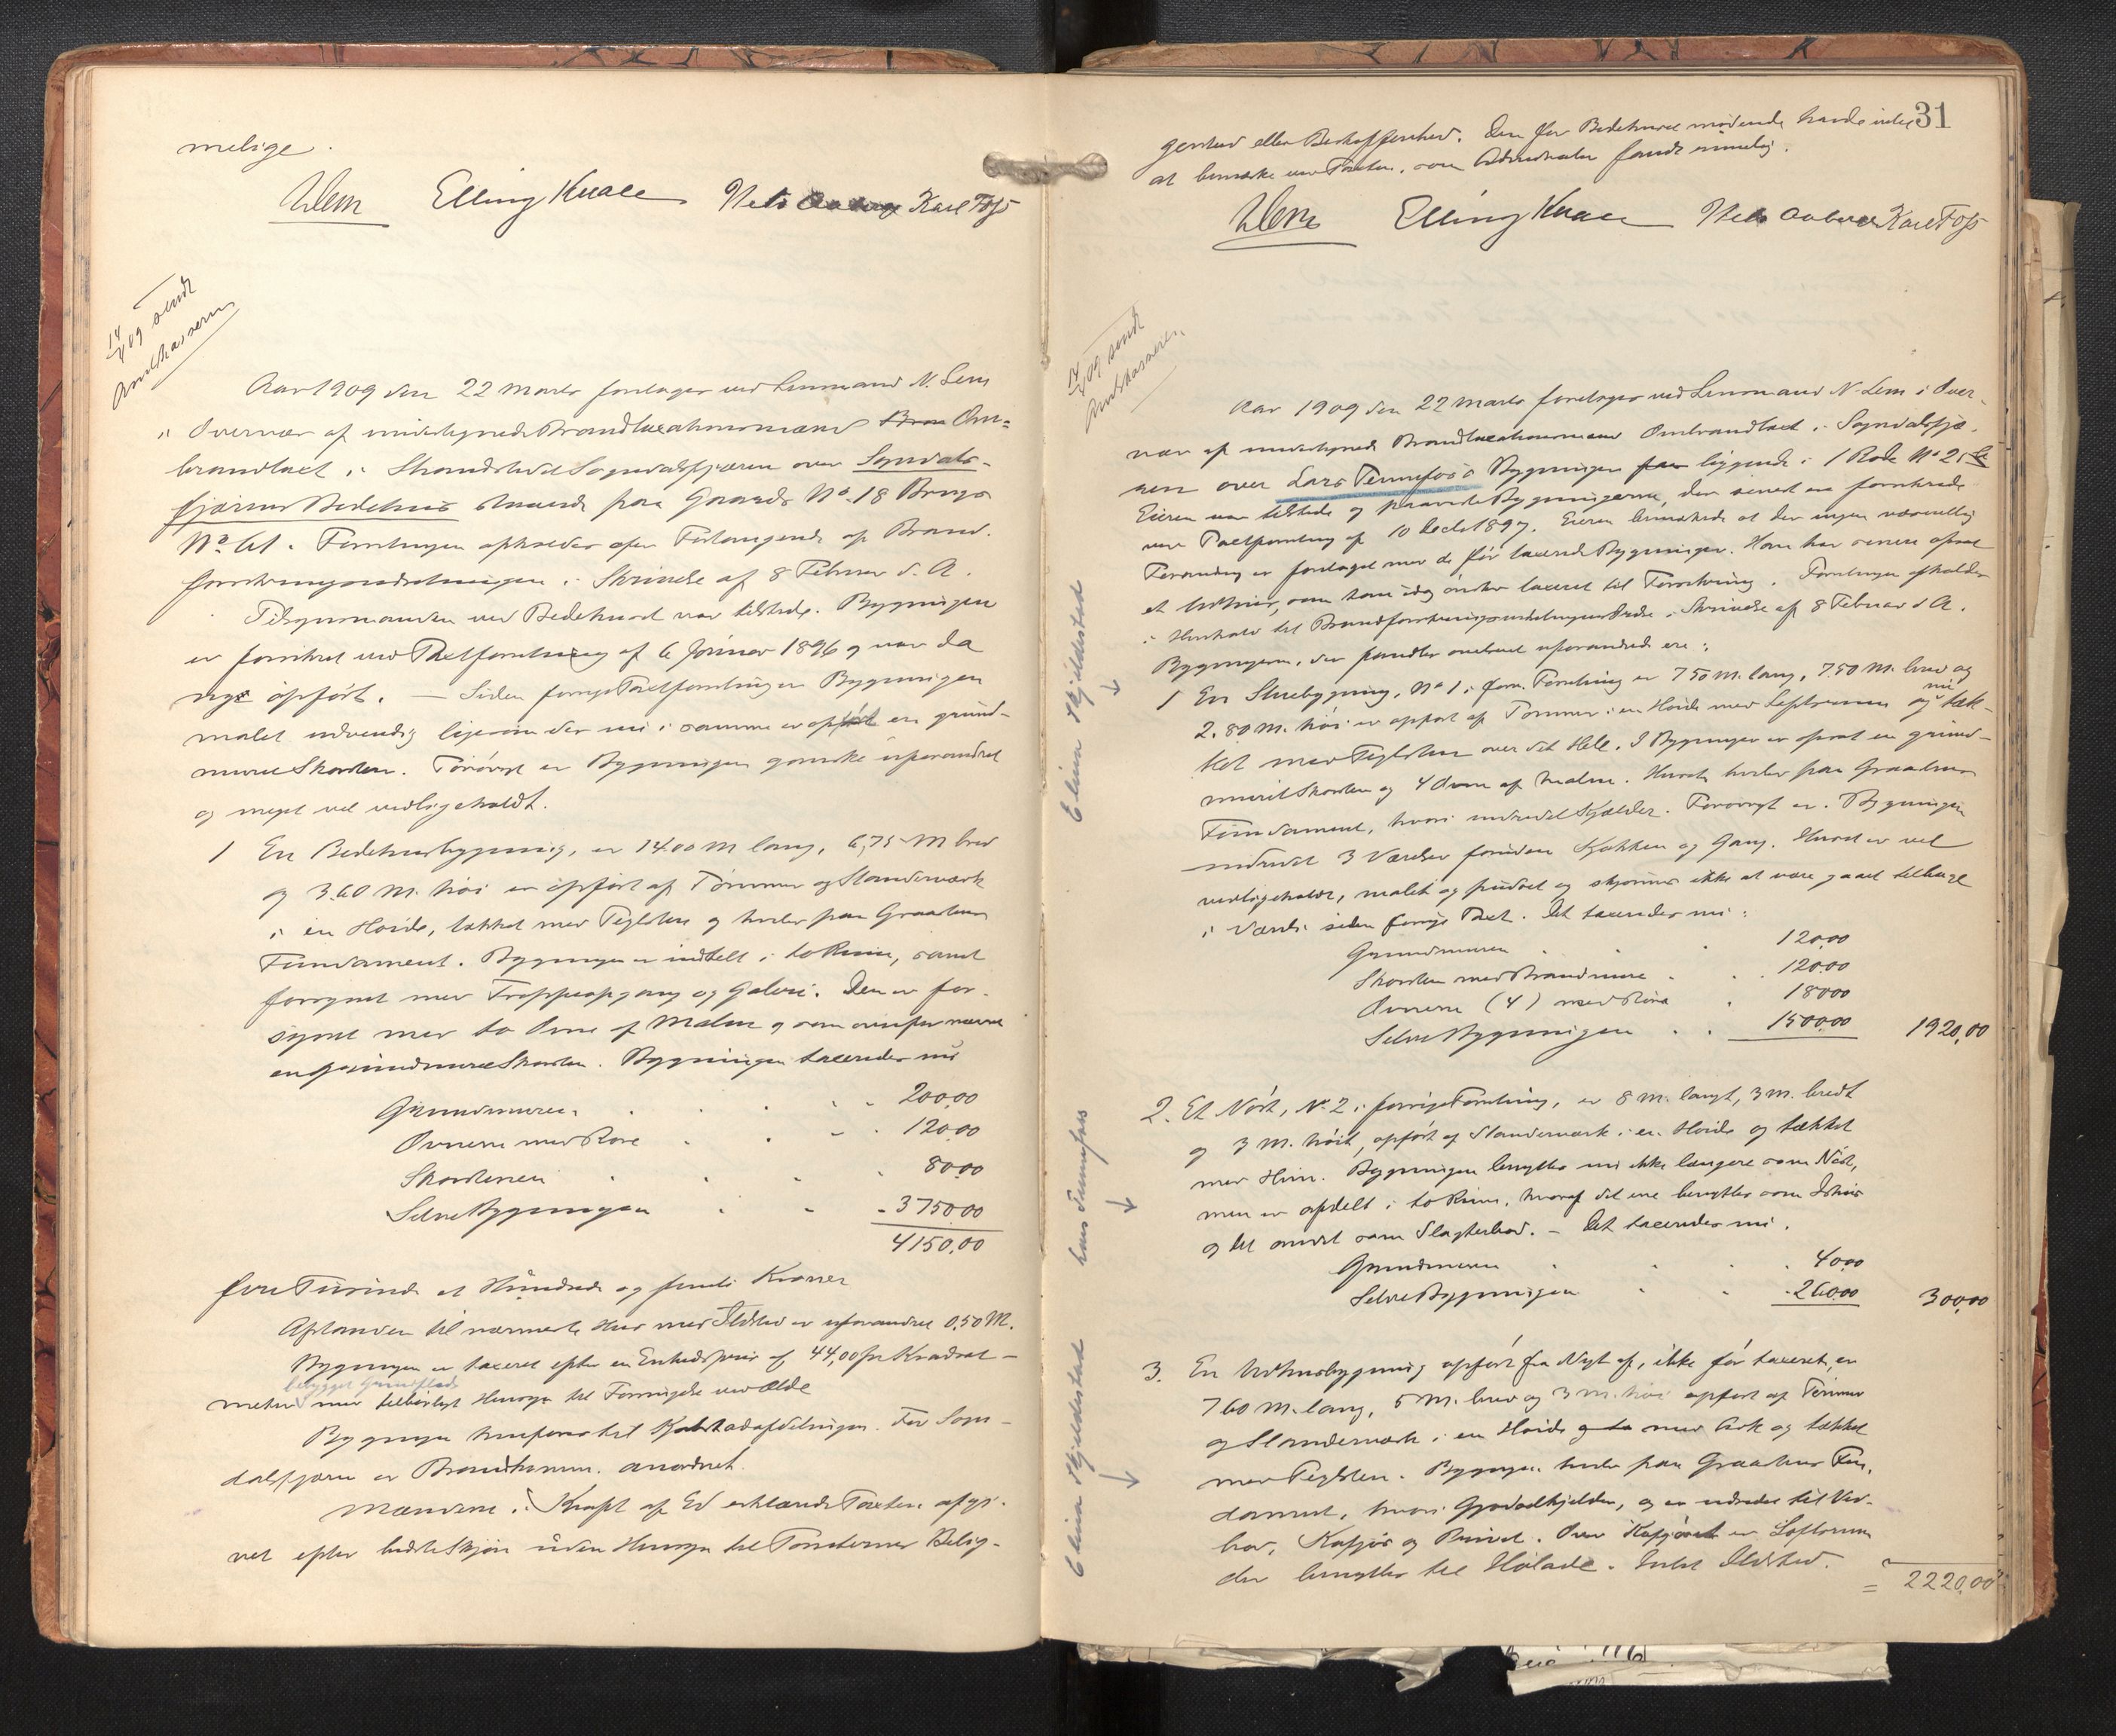 melige.
NLem Elling Kvale Nels Aaberg Karl Foss
14/4 09 sendt
Amtskasseren
Aar 1909 den 22 Marts foretoges ved Lensmand N. Lem
i Overvær af undertegnede Brandtaxationsmænd Om-
brandtaxt i Strandstedet Sogndalsfjæren over Sogndals-
fjærens Bedehus staaende paa Gaards No. 18 Brugs
No 61. Forretningen afholdes efter Forlangende af Brand-
forsikringsindretningen i Skrivelse af 8 Februar d. A.
Tilsynsmanden ved Bedehuset var tilstede. Bygningen
er forsikret ved Taxtforretning af 6 Januar 1896 og var da
nys opført. — Siden forrige Taxtforretning er Bygningen
malet udvendig ligesom der nu i samme er opført en grund-
muret Skorsten. Forøvrigt er Bygningen ganske uforandret
og meget vel vedligeholdt.
1 En Bedehusbygning, er 14.00 M lang, 6,75 M bred
og 3.60 M. høi er opført af Tømmer og Standerværk
i en Høide, tækket med Teglsten og hviler paa Graastens
Fundament. Bygningen er inddelt i to Rum, samt
forsynet med Trappeopgang og Galeri. Den er for-
synet med to Ovne af Malm og som ovenfor nævnt
en grundmuret Skorsten. Bygningen taxeredes nu
Grundmuren . . . . 200,00
Ovnene med Rør . . . . 120,00
Skorstenen . . . . 80,00
Selve Bygningen . . . 3750,00
4150,00
fire Tusinde et Hundrede og femti Kroner
Afstanden til nærmeste Hus med Ildsted er uforandret 0,50 M.
Bygningen er taxeret efter en Enhedspris af 44,00 pr Kvadrat-
bebygget Grundflade
meter med tilbørligt Hensyn til Forringelse ved Ælde
Bygningen henføres til Kjøbstadafdelingen. For Sogn-
dalsfjæren er Brandkomm. anordnet.
Mændene i Kraft af Ed erklærede Taxten afgi-
vet efter bedste Skjøn uden Hensyn til Tomternes Belig-
31
genhed eller Beskaffenhed. Den for Bedehuset mødende havde intet
at bemærke ved Taxten, som Administrator fandt rimelig.
NLem Elling Kvale Nels Aaberg Karl Foss
14/4 09 sendt
Amtskasseren
Aar 1909 den 22 Marts foretoges ved Lensmand N. Lem i Over-
vær af undertegnede Brandtaxationsmænd Ombrandtaxt i Sogndalsfjæ-
ren over Lars Tennefoss's Bygninger liggende i 1 Rode No 21
Eieren var tilstede og paaviste Bygningerne, der senest er forsikrede
ved Taxtforretning af 10 Decbr 1897. Eieren bemærkede at der ingen væsentlig
Forandring er foretaget med de før taxerede Bygninger. Han har senere opsat
et Udhus, som han idag ønsker taxeret til Forsikring. Forretningen afholdes
i Henhold til Brandforsikringsindretningens Ordre i Skrivelse af 8 Februar d A.
Bygningerne, der fandtes omtrent uforandrede ere:
1 En Stuebygning, No 1 i forr. Forretning er 7.50 m. lang, 7.50 M. bred og
2.80 M. høi er opført af Tømmer i en Høide med Loftsrum og nu tæk-
ket med Teglsten over det Hele. I Bygningen er opsat en grund-
muret Skorsten og 4 Ovne af Malm. Huset hviler paa Graastens
Fundament, hvori indredet Kjælder. Forøvrigt er Bygningen
indredet 3 Værelser foruden Kjøkken og Gang. Huset er vel
vedligeholdt, malet og pudset og skjønnes ikke at være gaaet tilbage
i Værdi siden forrige Taxt. Det taxeredes nu:
Grundmuren . . . 120,00
Skorsten med Brandmure . . . 120,00
Ovnene (4) med Rør . 180,00
Selve Bygningen . . 1500,00 1920,00
2. Et Nøst, No 2 i forrige Forretning, er 8 m. langt, 3 m. bredt
og 3 M. høit, opført af Standerværk i en Høide og tækket
med Hun. Bygningen benyttes nu ikke længere som Nøst,
men er afdelt i to Rum, hvoraf det ene benyttes som Ishus
og det andet som Slagterbod. — Det taxeredes nu.
Grundmuren . . . . 40,00
Selve Bygningen . . 260,00 300,00
3. En Udhusbygning opført fra Nyt af, ikke før taxeret, er
7.60 M. lang, 5 M. bred og 3 m. høi opført af Tømmer
og Standerværk i en Høide med Ark og tækket
med Teglsten. Bygningen hviler paa Graastens Fun-
dament, hvori Gjødselkjelder, og er indredet til Ved-
bod, Kufjøs og Privet. Over Kufjøset er Loftsrum
der benyttes til Høilade. Intet Ildsted.
= 2220,00
Elina Kjildestad
Lars Tennefoss
Elina Kjildestad